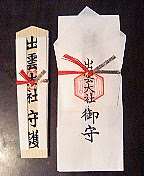 出雲大社守護
出雲大社御守